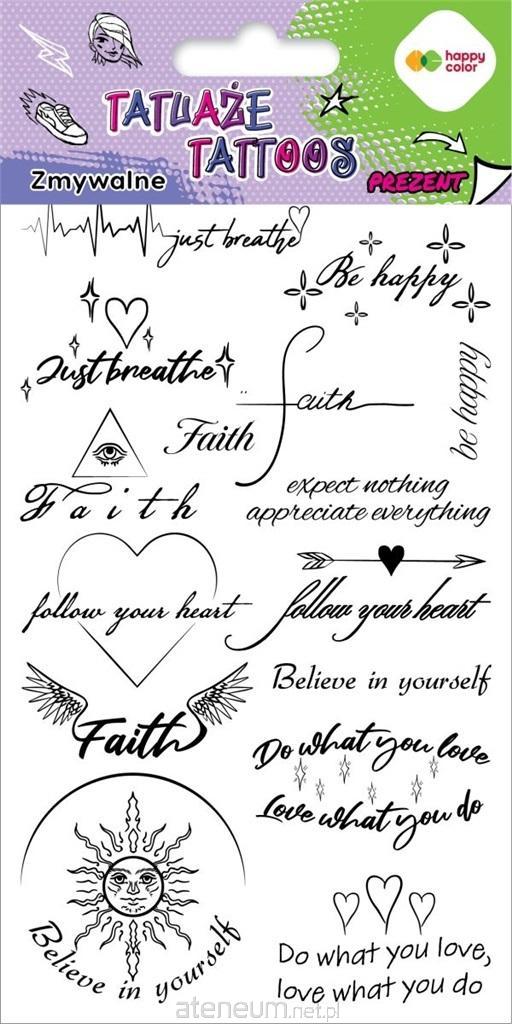 happy
color
TATUAŻE
TATTOOS
Zmywalne
PREZENT
just breathe
Be happy
Just breathe
be happy
faith
Faith
Faith
expect nothing
appreciate everything
follow your heart
follow your heart
Believe in yourself
Faith
Do what you love
Love what you do
Believe in yourself
Do what you love,
love what you do
ateneum.net.pl